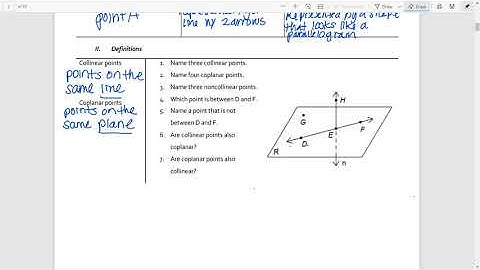 point A
line w/ 2 arrows
Represented by a shape
that looks like a
parallelogram
II. Definitions
Collinear points
points on the
same line
Coplanar points
points on the
same plane
1. Name three collinear points.
2. Name four coplanar points.
3. Name three noncollinear points.
4. Which point is between D and F.
5. Name a point that is not
between D and F.
6. Are collinear points also
coplanar?
7. Are coplanar points also
collinear?
H
G
F
E
D
R
n